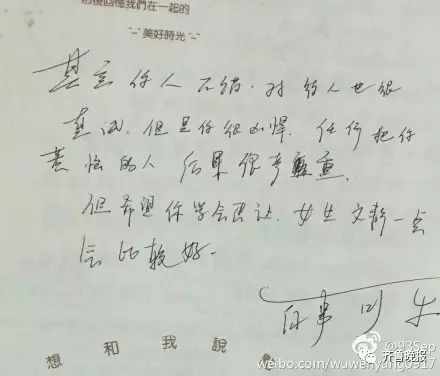 然後回憶我們在一起的
~美好時光~
其实你人不错.对的人也很
真诚.但是你很凶悍.任何把你
惹恼的人 后果很严重.
但希望你学会忍让.女生文静一点
会比较好.
想和我說
@93Sep
weibo.com/wuwenyang0917
齐鲁晚报